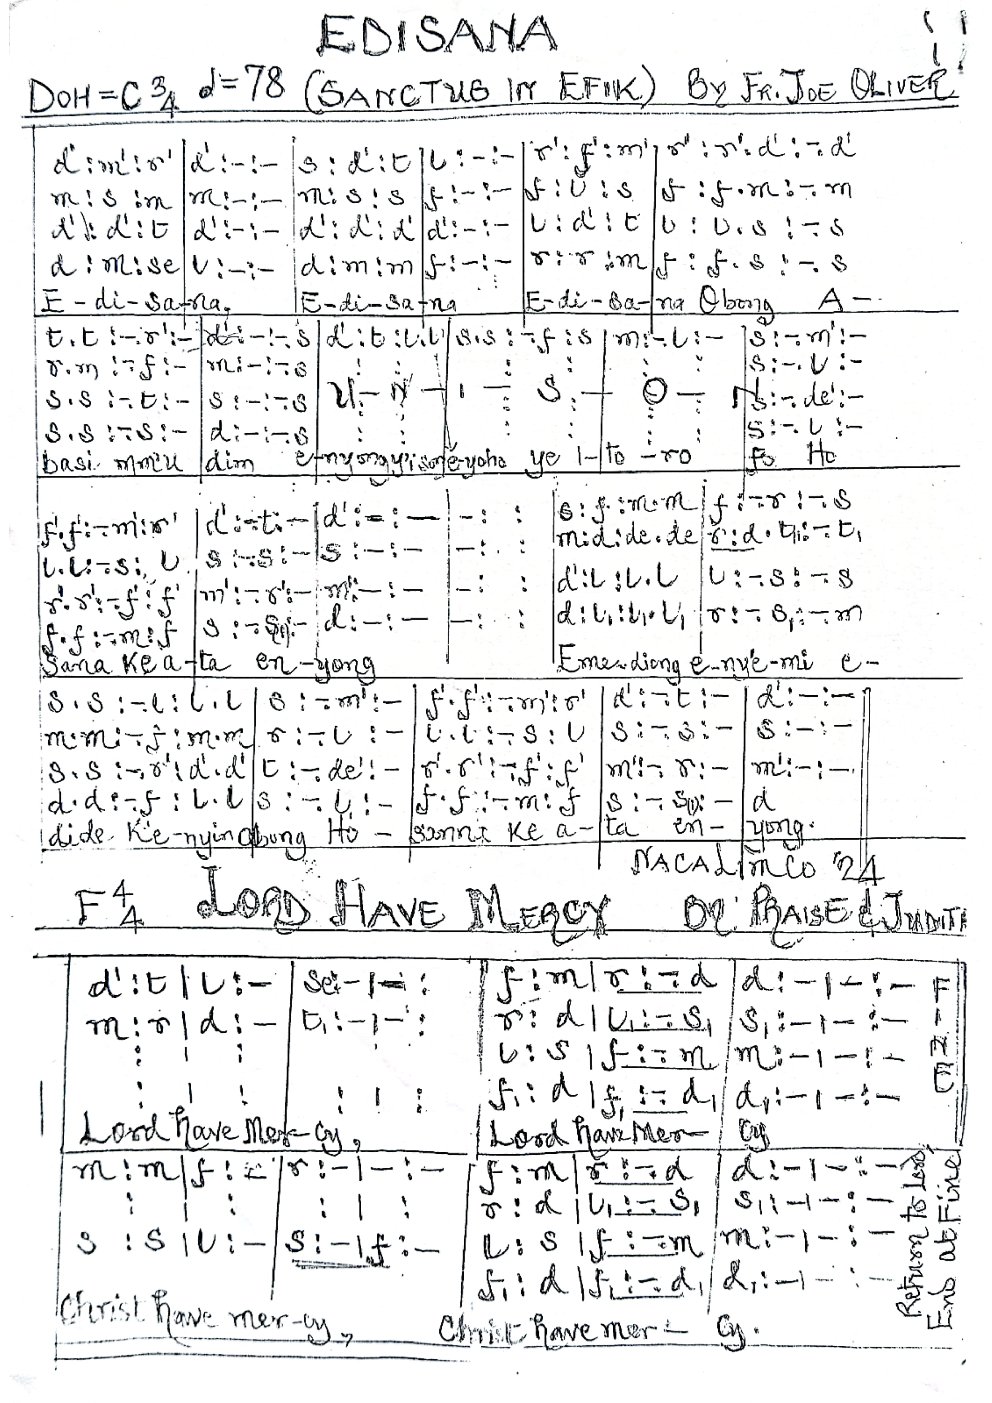 EDISANA
DOH=C 3/4 d=78 (SANCTUS IN EFIK) By FR. JOE OLIVER
d' : m' : r' | d' : - : - | s : d' : t | l : - : - | r' : f' : m' | r' : r'. d' : -. d'
m : s : m | m : - : - | m : s : s | f : - : - | f : l : s | f : f.m : -. m
d' : d' : t | d' : - : - | d' : d' : d' | d' : - : - | l : d' : t | l : l.s : -. s
d : m : se | l : - : - | d : m : m | f : - : - | r : r : m | f : f.s : -. s
E - di - sa - na, E - di - sa - na E - di - sa - na Obong A -
t.t : -. r' : - | d' : - : -. s | d' : t : l.l | s.s : -. f : s | m : -. l : - | s : -. m' : -
r.m : -. f : - | m : - : -. s | s : -. l : -
s.s : -. t : - | s : - : -. s | U - N - I - S - O - N | s : -. de' : -
s.s : -. s : - | d : - : -. s | s : -. l : -
basi mme u dim e-nyong ye ye I - to - ro fo Ho
f'.f' : -. m' : r' | d' : -. t : - | d' : - : - | - : : | s : f : m.m | f : -. r : -. s
l.l : -. s : l | s : -. s : - | s : - : - | - : : | m : d : de.de | r : d. t₁ : -. t₁
r'.r' : -. f' : f' | m' : -. r' : - | m' : - : - | - : : | d' : l : l.l | l : -. s : -. s
f.f : -. m : f | s : -. s₁ : - | d : - : - | - : : | d : l₁ : l₁.l₁ | r : -. s₁ : -. m
Sana ke a - ta en - yong Eme - diong e - nye - mi e -
s.s : -. l : l.l | s : -. m' : - | f'.f' : -. m' : r' | d' : -. t : - | d' : - : -
m.m : -. f : m.m | r : -. l : - | l.l : -. s : l | s : -. s : - | s : - : -
s.s : -. r' : d'.d' | t : -. de' : - | r'.r' : -. f' : f' | m' : -. r : - | m' : - : -
d.d : -. f : l.l | s : -. l : - | f.f : -. m : f | s : -. s₁ : - | d
dide ke - nyin Obong Ho - sanna ke a - ta en - yong.
NACALIMCO '24
F 4/4 LORD HAVE MERCY By: PRAISE & JUDITH
d' : t | l : - | se : - | - : | f : m | r : -. d | d : - | - : - FINE
m : r | d : - | t₁ : - | - : | r : d | l₁ : -. s₁ | s₁ : - | - : -
: | : | : | : | l : s | f : -. m | m : - | - : -
: | : | : | : | f₁ : d | f₁ : -. d₁ | d₁ : - | - : -
Lord have Mer - cy, Lord have Mer - cy
m : m | f : - | r : - | - : - | f : m | r : -. d | d : - | - : -
: | : | : | : | r : d | l₁ : -. s₁ | s₁ : - | - : -
s : s | l : - | s : - | f : - | l : s | f : -. m | m : - | - : -
f₁ : d | f₁ : -. d₁ | d₁ : - | - : -
Christ have mer - cy, Christ have mer - cy.
Return to Lord,
End at Fine